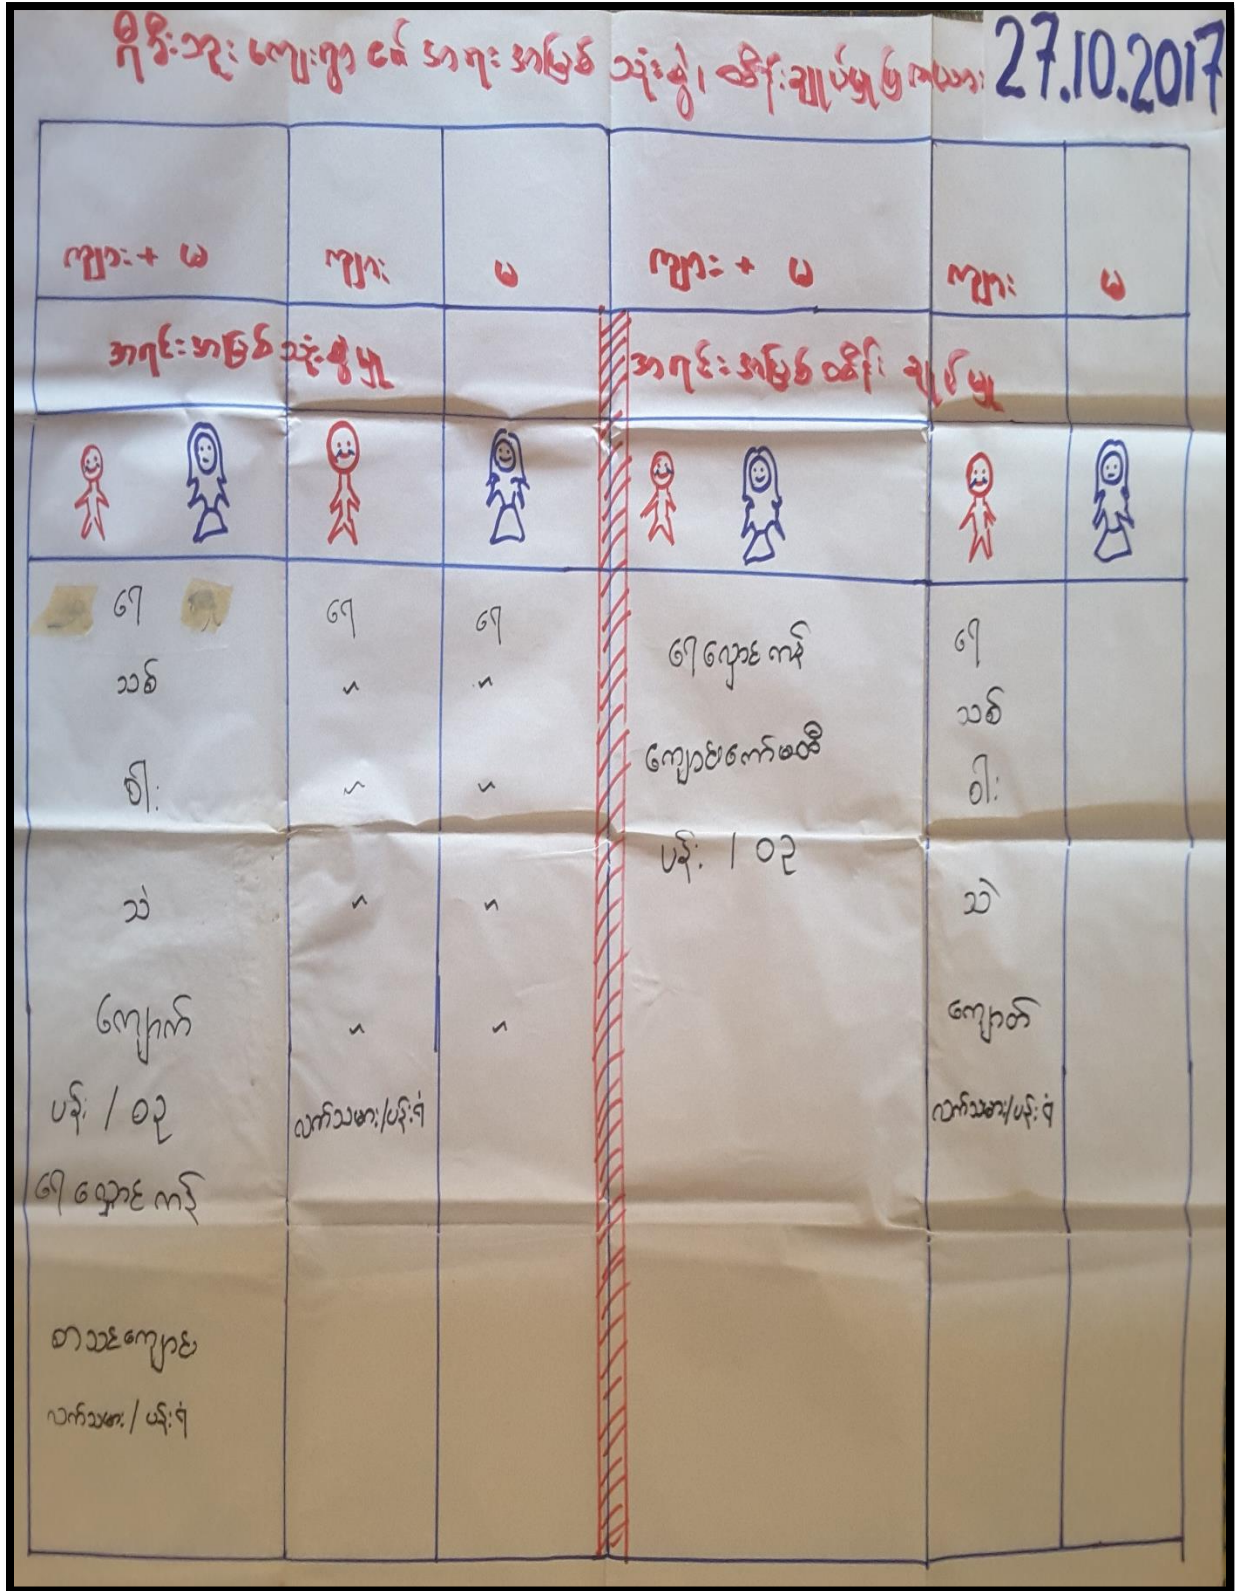 ကျေးရွာ ၏ အရင်းအမြစ် သုံးစွဲ၊ ထိန်းချုပ်မှုပြ ဇယား 27.10.2017
ကျား + မ ကျား မ ကျား + မ ကျား မ
အရင်းအမြစ် သုံးစွဲမှု အရင်းအမြစ် ထိန်းချုပ်မှု
ရေ ရေ ရေ ရေလှောင်ကန် ရေ
သစ် " " သစ်
ဝါး " " ကျောင်းကော်မတီ ဝါး
သဲ " " ပန်း / ဝဥ သဲ
ကျောက် " " ကျောက်
ပန်း / ဝဥ လက်သမား/ပန်းရံ လက်သမား/ပန်းရံ
ရေလှောင်ကန်
စာသင်ကျောင်း
လက်သမား / ပန်းရံ